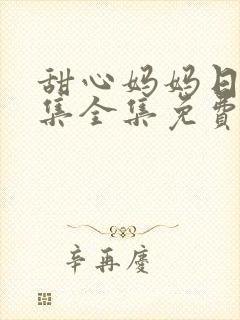 甜心妈妈日
集全集免費
辛再慶